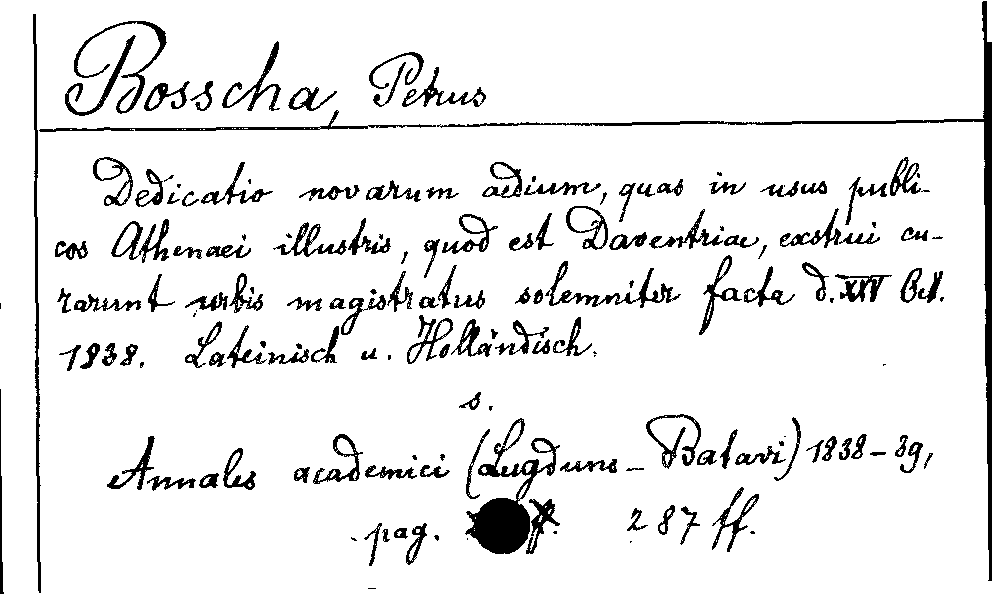 Bosscha, Petrus
Dedicatio novarum aedium, quas in usus publi-
cos Athenaei illustris, quod est Daventriae, exstrui cu-
rarunt urbis magistratus solemniter facta d. XXV Oct.
1838. Lateinisch u. Holländisch.
s.
Annales academici (Lugduno-Batavi) 1838-39,
pag. 287 ff.